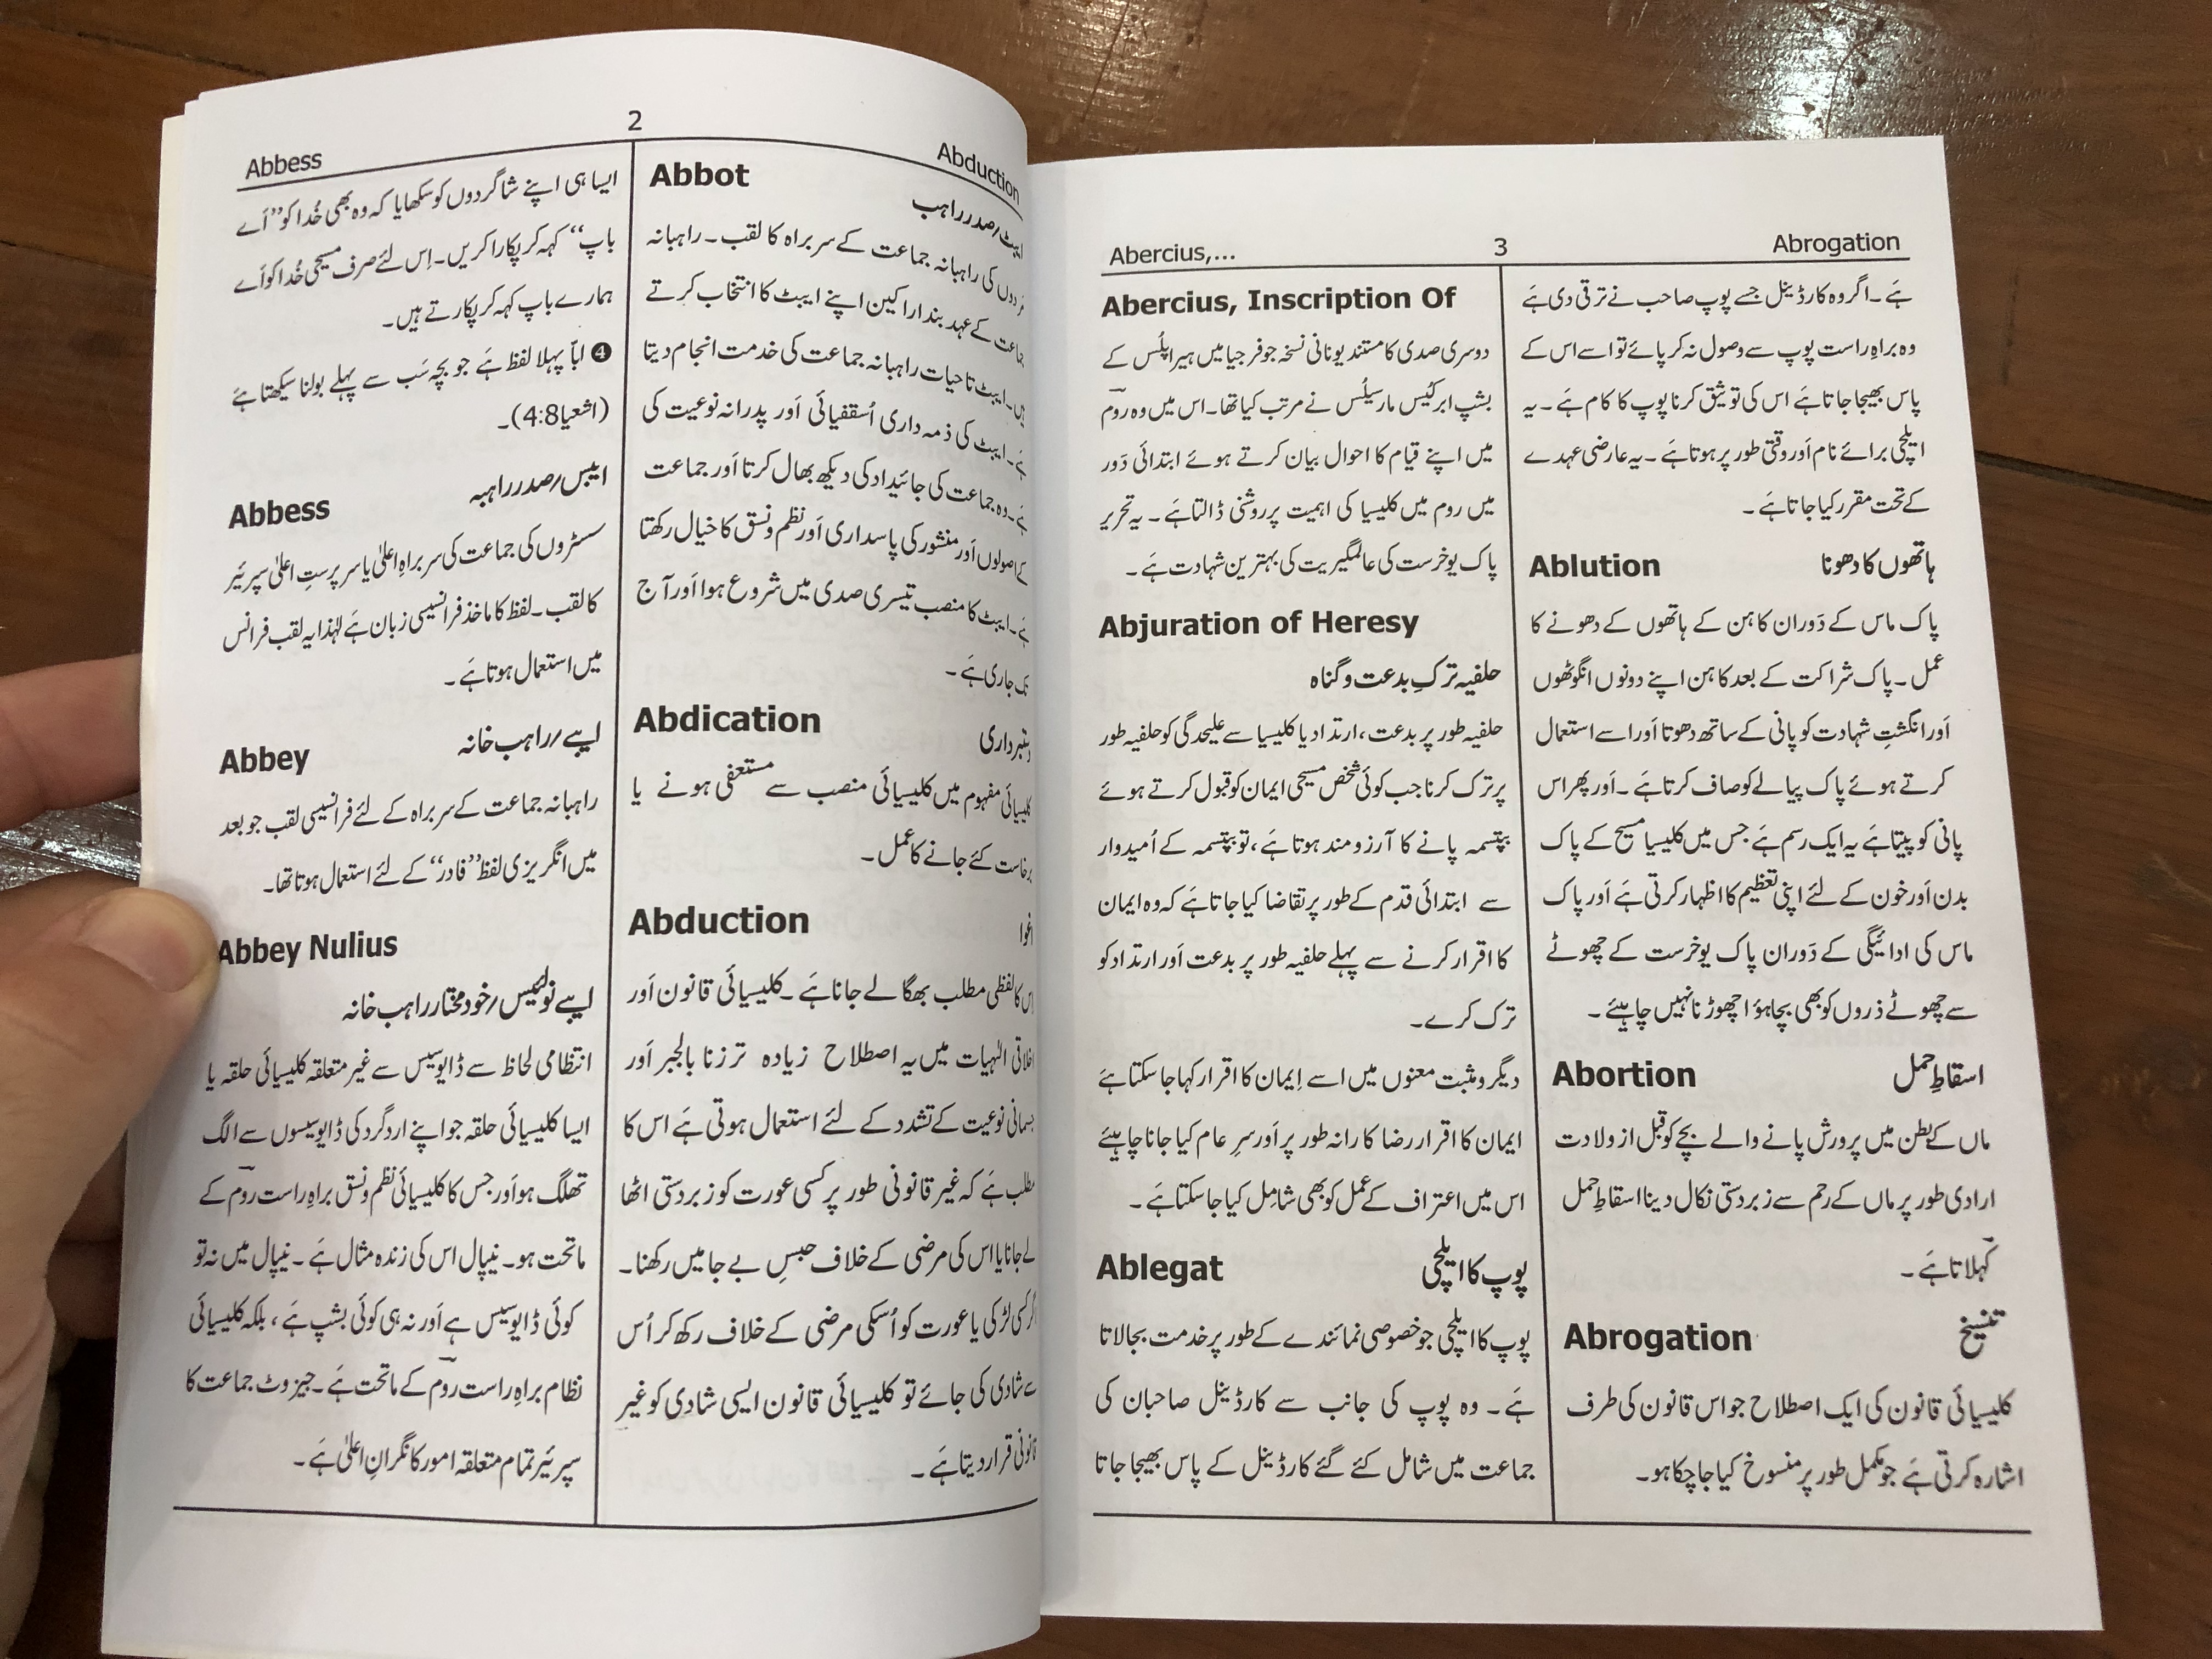 Abbess
2
Abduction
ایسا ہی اپنے شاگردوں کو سکھایا کہ وہ بھی خُدا کو ’’اَے
باپ‘‘ کہہ کر پکارا کریں۔ اِس لئے صرف مسیحی خُدا کو اَے
ہمارے باپ کہہ کر پکارتے ہیں۔
❹ ابّا پہلا لفظ ہَے جو بچہ سَب سے پہلے بولنا سیکھتا ہَے
(اشعیا 4:8)۔
Abbess ایبس/صدر راہبہ
سسٹروں کی جماعت کی سربراہِ اعلیٰ یا سرپرستِ اعلیٰ سپرئیر
کا لقب۔ لفظ کا ماخذ فرانسیسی زبان ہَے لہٰذا یہ لقب فرانس
میں استعمال ہوتا ہَے۔
Abbey ایبے/راہب خانہ
راہبانہ جماعت کے سربراہ کے لئے فرانسیسی لقب جو بعد
میں انگریزی لفظ ’’فادر‘‘ کے لئے استعمال ہوتا تھا۔
Abbey Nulius
ایبے نولیئس/خود مختار راہب خانہ
انتظامی لحاظ سے ڈایوسیس سے غیر متعلقہ کلیسیائی حلقہ یا
ایسا کلیسیائی حلقہ جو اپنے اردگرد کی ڈایوسیسوں سے الگ
تھلگ ہو اَور جس کا کلیسیائی نظم و نسق براہِ راست روم کے
ماتحت ہو۔ نیپال اس کی زندہ مثال ہَے۔ نیپال میں نہ تو
کوئی ڈایوسیس ہے اَور نہ ہی کوئی بشپ ہَے، بلکہ کلیسیائی
نظام براہِ راست روم کے ماتحت ہَے۔ جیزوٹ جماعت کا
سپرئیر تمام متعلقہ امور کا نگرانِ اعلیٰ ہَے۔
Abbot
ایبٹ/صدر راہب
مَردوں کی راہبانہ جماعت کے سربراہ کا لقب۔ راہبانہ
جماعت کے عہد بند اراکین اپنے ایبٹ کا انتخاب کرتے
ہیں۔ ایبٹ تاحیات راہبانہ جماعت کی خدمت انجام دیتا
ہَے۔ ایبٹ کی ذمہ داری اُسقفیائی اَور پدرانہ نوعیت کی
ہَے۔ وہ جماعت کی جائیداد کی دیکھ بھال کرتا اَور جماعت
کے اصولوں اَور منشور کی پاسداری اَور نظم و نسق کا خیال رکھتا
ہَے۔ ایبٹ کا منصب تیسری صدی میں شروع ہوا اَور آج
تک جاری ہَے۔
Abdication دستبرداری
کلیسیائی مفہوم میں کلیسیائی منصب سے مستعفی ہونے یا
برخاست کئے جانے کا عمل۔
Abduction اغوا
اس کا لفظی مطلب بھگا لے جانا ہَے۔ کلیسیائی قانون اَور
اخلاقی الٰہیات میں یہ اصطلاح زیادہ تر زنا بالجبر اَور
جسمانی نوعیت کے تشدد کے لئے استعمال ہوتی ہَے اس کا
مطلب ہَے کہ غیر قانونی طور پر کسی عورت کو زبردستی اٹھا
لے جانا یا اس کی مرضی کے خلاف حبسِ بے جا میں رکھنا۔
اگر کسی لڑکی یا عورت کو اُسکی مرضی کے خلاف رکھ کر اُس
سے شادی کی جائے تو کلیسیائی قانون ایسی شادی کو غیر
قانونی قرار دیتا ہَے۔
Abercius,...
3
Abrogation
Abercius, Inscription Of
دوسری صدی کا مستند یونانی نسخہ جو فرجیا میں ہیراپلُس کے
بشپ ابرکیُس مارسیلُس نے مرتب کیا تھا۔ اس میں وہ روم
میں اپنے قیام کا احوال بیان کرتے ہوئے ابتدائی دَور
میں روم میں کلیسیا کی اہمیت پر روشنی ڈالتا ہَے۔ یہ تحریر
پاک یوخرست کی عالمگیریت کی بہترین شہادت ہَے۔
Abjuration of Heresy
حلفیہ ترکِ بدعت و گناہ
حلفیہ طور پر بدعت، ارتداد یا کلیسیا سے علیحدگی کو حلفیہ طور
پر ترک کرنا جب کوئی شخص مسیحی ایمان کو قبول کرتے ہوئے
بپتسمہ پانے کا آرزو مند ہوتا ہَے، تو بپتسمہ کے اُمیدوار
سے ابتدائی قدم کے طور پر تقاضا کیا جاتا ہَے کہ وہ ایمان
کا اقرار کرنے سے پہلے حلفیہ طور پر بدعت اَور ارتداد کو
ترک کرے۔
دیگر و مثبت معنوں میں اسے اِیمان کا اقرار کہا جا سکتا ہَے
ایمان کا اقرار رضا کارانہ طور پر اَور سرِ عام کیا جانا چاہیئے
اس میں اعتراف کے عمل کو بھی شامل کیا جا سکتا ہَے۔
Ablegat پوپ کا ایلچی
پوپ کا ایلچی جو خصوصی نمائندے کے طور پر خدمت بجا لاتا
ہَے۔ وہ پوپ کی جانب سے کارڈینل صاحبان کی
جماعت میں شامل کئے گئے کارڈینل کے پاس بھیجا جاتا
ہَے۔ اگر وہ کارڈینل جسے پوپ صاحب نے ترقی دی ہَے
وہ براہِ راست پوپ سے وصول نہ کر پائے تو اسے اس کے
پاس بھیجا جاتا ہَے اس کی توثیق کرنا پوپ کا کام ہَے۔ یہ
ایلچی برائے نام اَور وقتی طور پر ہوتا ہَے۔ یہ عارضی عہدے
کے تحت مقرر کیا جاتا ہَے۔
Ablution ہاتھوں کا دھونا
پاک ماس کے دَوران کاہن کے ہاتھوں کے دھونے کا
عمل۔ پاک شراکت کے بعد کاہن اپنے دونوں انگوٹھوں
اَور انگشتِ شہادت کو پانی کے ساتھ دھوتا اَور اسے استعمال
کرتے ہوئے پاک پیالے کو صاف کرتا ہَے۔ اَور پھر اس
پانی کو پیتا ہَے یہ ایک رسم ہَے جس میں کلیسیا مسیح کے پاک
بدن اَور خون کے لئے اپنی تعظیم کا اظہار کرتی ہَے اَور پاک
ماس کی ادائیگی کے دَوران پاک یوخرست کے چھوٹے
سے چھوٹے ذروں کو بھی بچا ہؤا چھوڑنا نہیں چاہیئے۔
Abortion اسقاطِ حمل
ماں کے بطن میں پرورش پانے والے بچے کو قبل از ولادت
ارادی طور پر ماں کے رحم سے زبردستی نکال دینا اسقاطِ حمل
کہلاتا ہَے۔
Abrogation تنسیخ
کلیسیائی قانون کی ایک اصطلاح جو اس قانون کی طرف
اشارہ کرتی ہَے جو مکمل طور پر منسوخ کیا جا چکا ہو۔